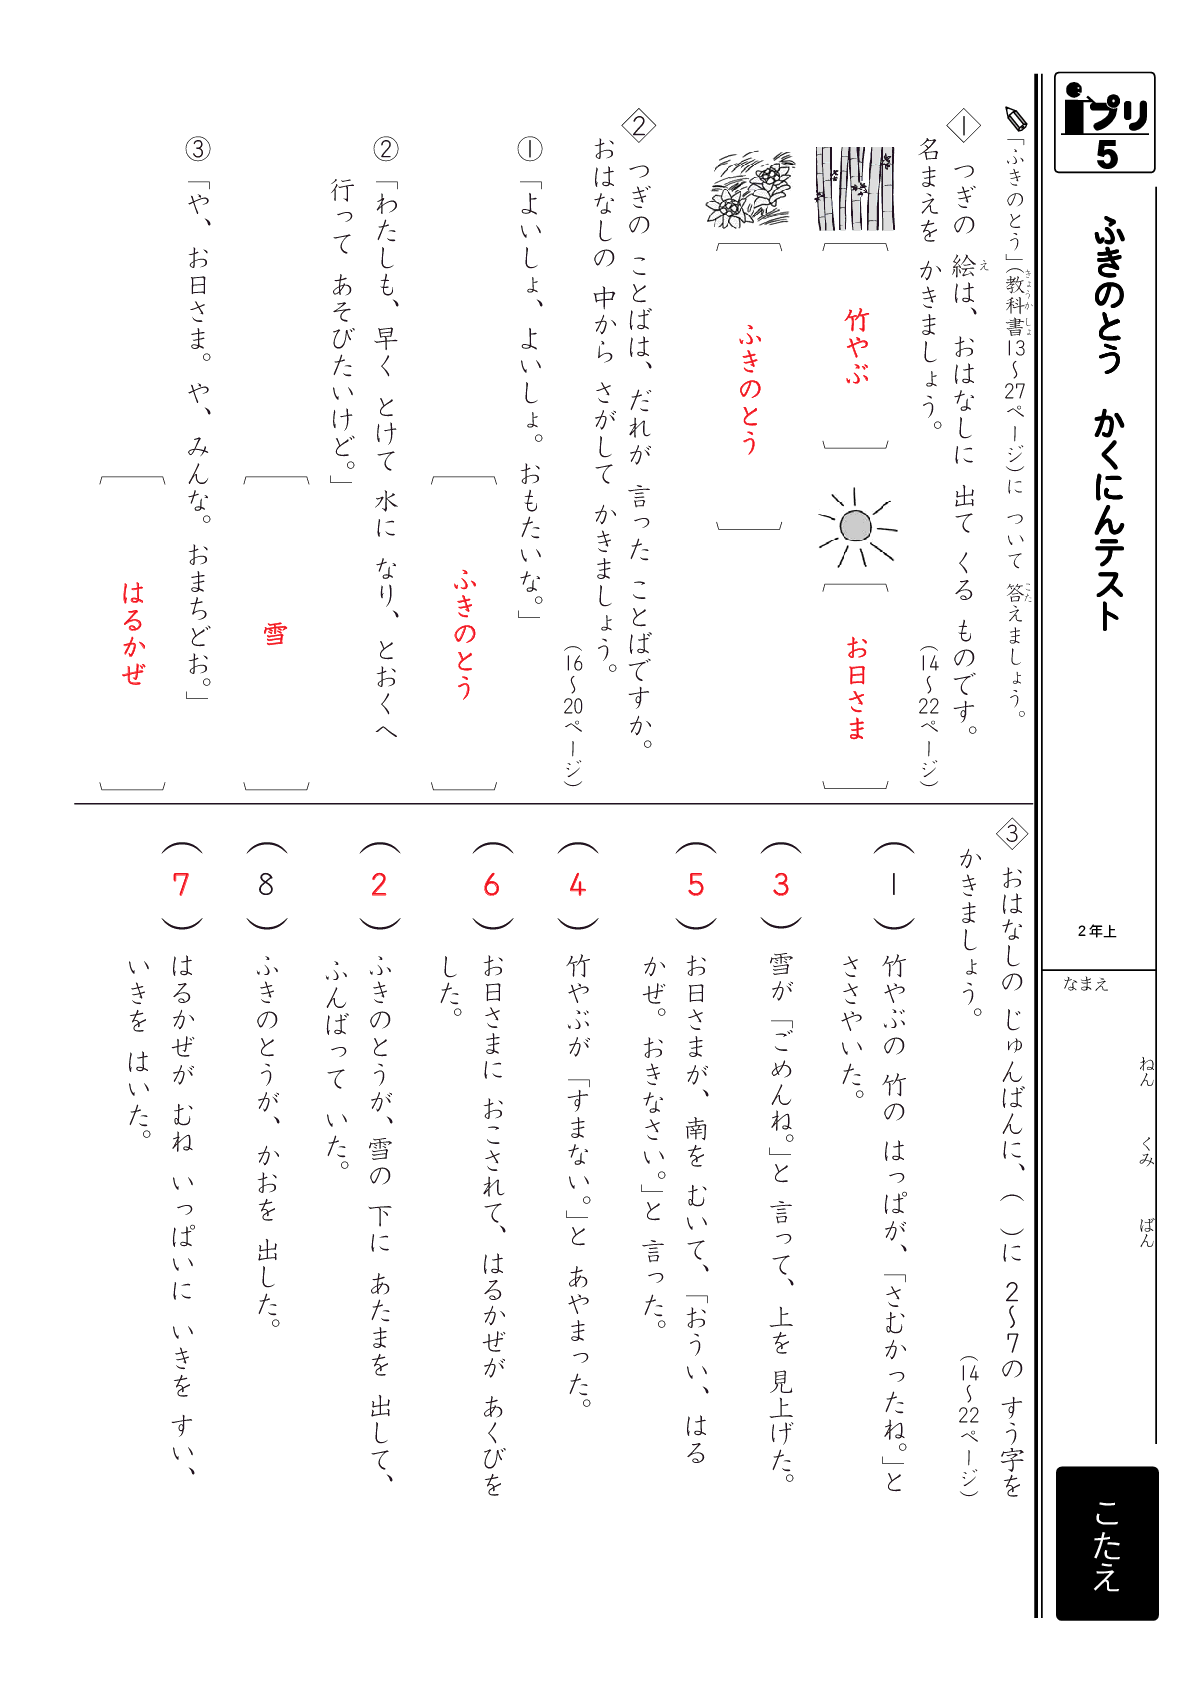 iプリ
5
ふきのとう　かくにんテスト
2年上
なまえ
ねん　くみ　ばん
こたえ
「ふきのとう」(教科書13〜27ページ)に ついて 答えましょう。
きょうかしょ
こた
1 つぎの 絵は、おはなしに 出て くる ものです。
え
名まえを かきましょう。
(14〜22ページ)
竹やぶ
お日さま
ふきのとう
2 つぎの ことばは、だれが 言った ことばですか。
おはなしの 中から さがして かきましょう。
(16〜20ページ)
① 「よいしょ、よいしょ。おもたいな。」
ふきのとう
② 「わたしも、早く とけて 水に なり、とおくへ
行って あそびたいけど。」
雪
③ 「や、お日さま。や、みんな。おまちどお。」
はるかぜ
3 おはなしの じゅんばんに、( )に 2〜7の すう字を
かきましょう。
(14〜22ページ)
(1) 竹やぶの 竹の はっぱが、「さむかったね。」と
ささやいた。
(3) 雪が 「ごめんね。」と 言って、上を 見上げた。
(5) お日さまが、南を むいて、「おうい、はる
かぜ。おきなさい。」と 言った。
(4) 竹やぶが 「すまない。」と あやまった。
(6) お日さまに おこされて、はるかぜが あくびを
した。
(2) ふきのとうが、雪の 下に あたまを 出して、
ふんばって いた。
(8) ふきのとうが、かおを 出した。
(7) はるかぜが むね いっぱいに いきを すい、
いきを はいた。